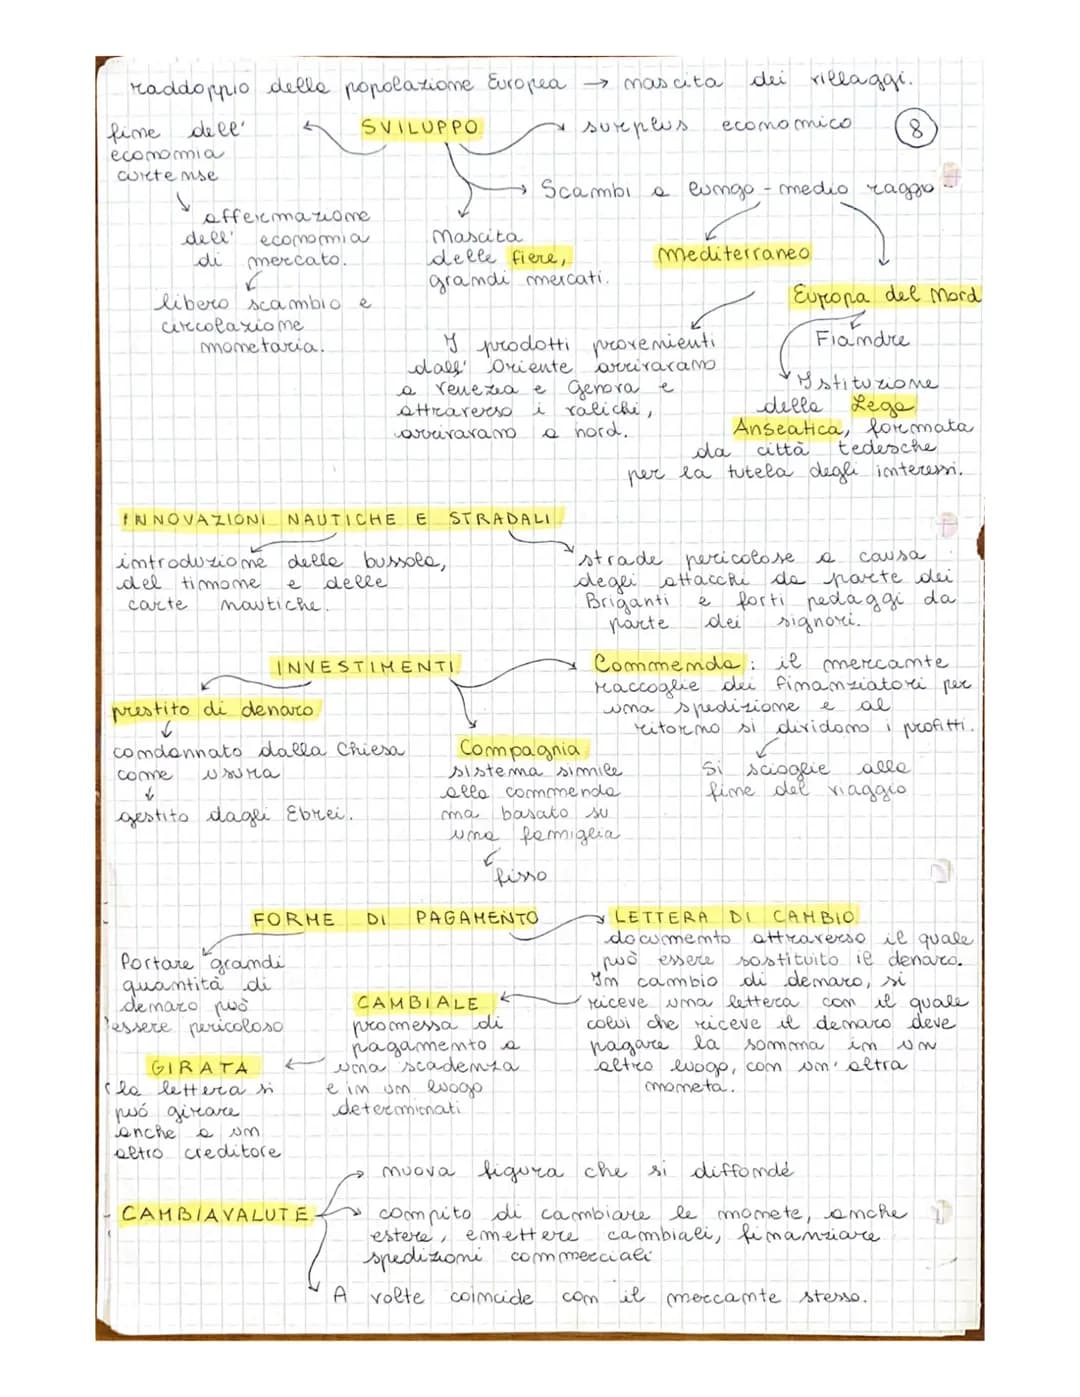 raddoppio della popolazione Europea → nascita dei villaggi.
SVILUPPO
8
fine dell'
economia
curtense
affermazione
dell' economia
di mercato.
libero scambio e
circolazione
monetaria.
surplus economico
Scambi a lungo - medio raggio
Nascita
delle fiere,
grandi mercati.
Mediterraneo
I prodotti provenienti
dall' Oriente arrivavano
a Venezia e Genova e
attraverso i valichi,
arrivavano a nord.
Europa del Nord
Fiandre
Istituzione
della Lega
Anseatica, formata
da città tedesche
per la tutela degli interessi.
INNOVAZIONI NAUTICHE E STRADALI
introduzione della bussola,
del timone e delle
carte nautiche.
strade pericolose a causa
degli attacchi da parte dei
Briganti e forti pedaggi da
parte dei signori.
INVESTIMENTI
prestito di denaro
condannato dalla Chiesa
come usura
gestito dagli Ebrei.
Compagnia
sistema simile
alla commenda
ma basato su
una famiglia
fisso
Commenda: il mercante
raccoglie dei finanziatori per
una spedizione e al
ritorno si dividono i profitti.
Si scioglie alla
fine del viaggio
FORME DI PAGAMENTO
Portare grandi
quantità di
denaro può
essere pericoloso
LETTERA DI CAMBIO
documento attraverso il quale
può essere sostituito il denaro.
In cambio di denaro, si
riceve una lettera con il quale
colui che riceve il denaro deve
pagare la somma in un
altro luogo, con un' altra
moneta.
CAMBIALE
promessa di
pagamento a
una scadenza
e in un luogo
determinati
GIRATA
la lettera si
può girare
anche a un
altro creditore
CAMBIAVALUTE
nuova figura che si diffondé
compito di cambiare le monete, anche
estere, emettere cambiali, finanziare
spedizioni commerciali
A volte coincide con il mercante stesso.